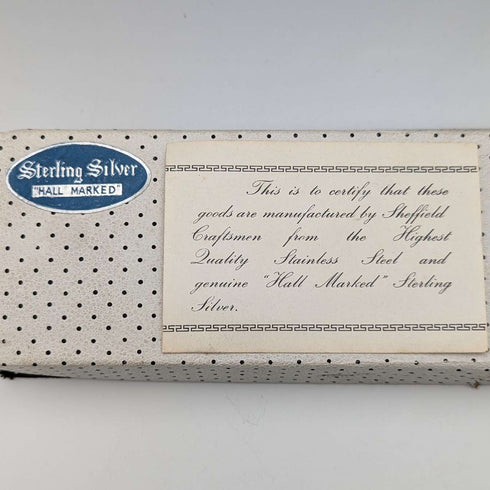 Sterling Silver
"HALL MARKED"
This is to certify that these
goods are manufactured by Sheffield
Craftsmen from the Highest
Quality Stainless Steel and
genuine "Hall Marked" Sterling
Silver.